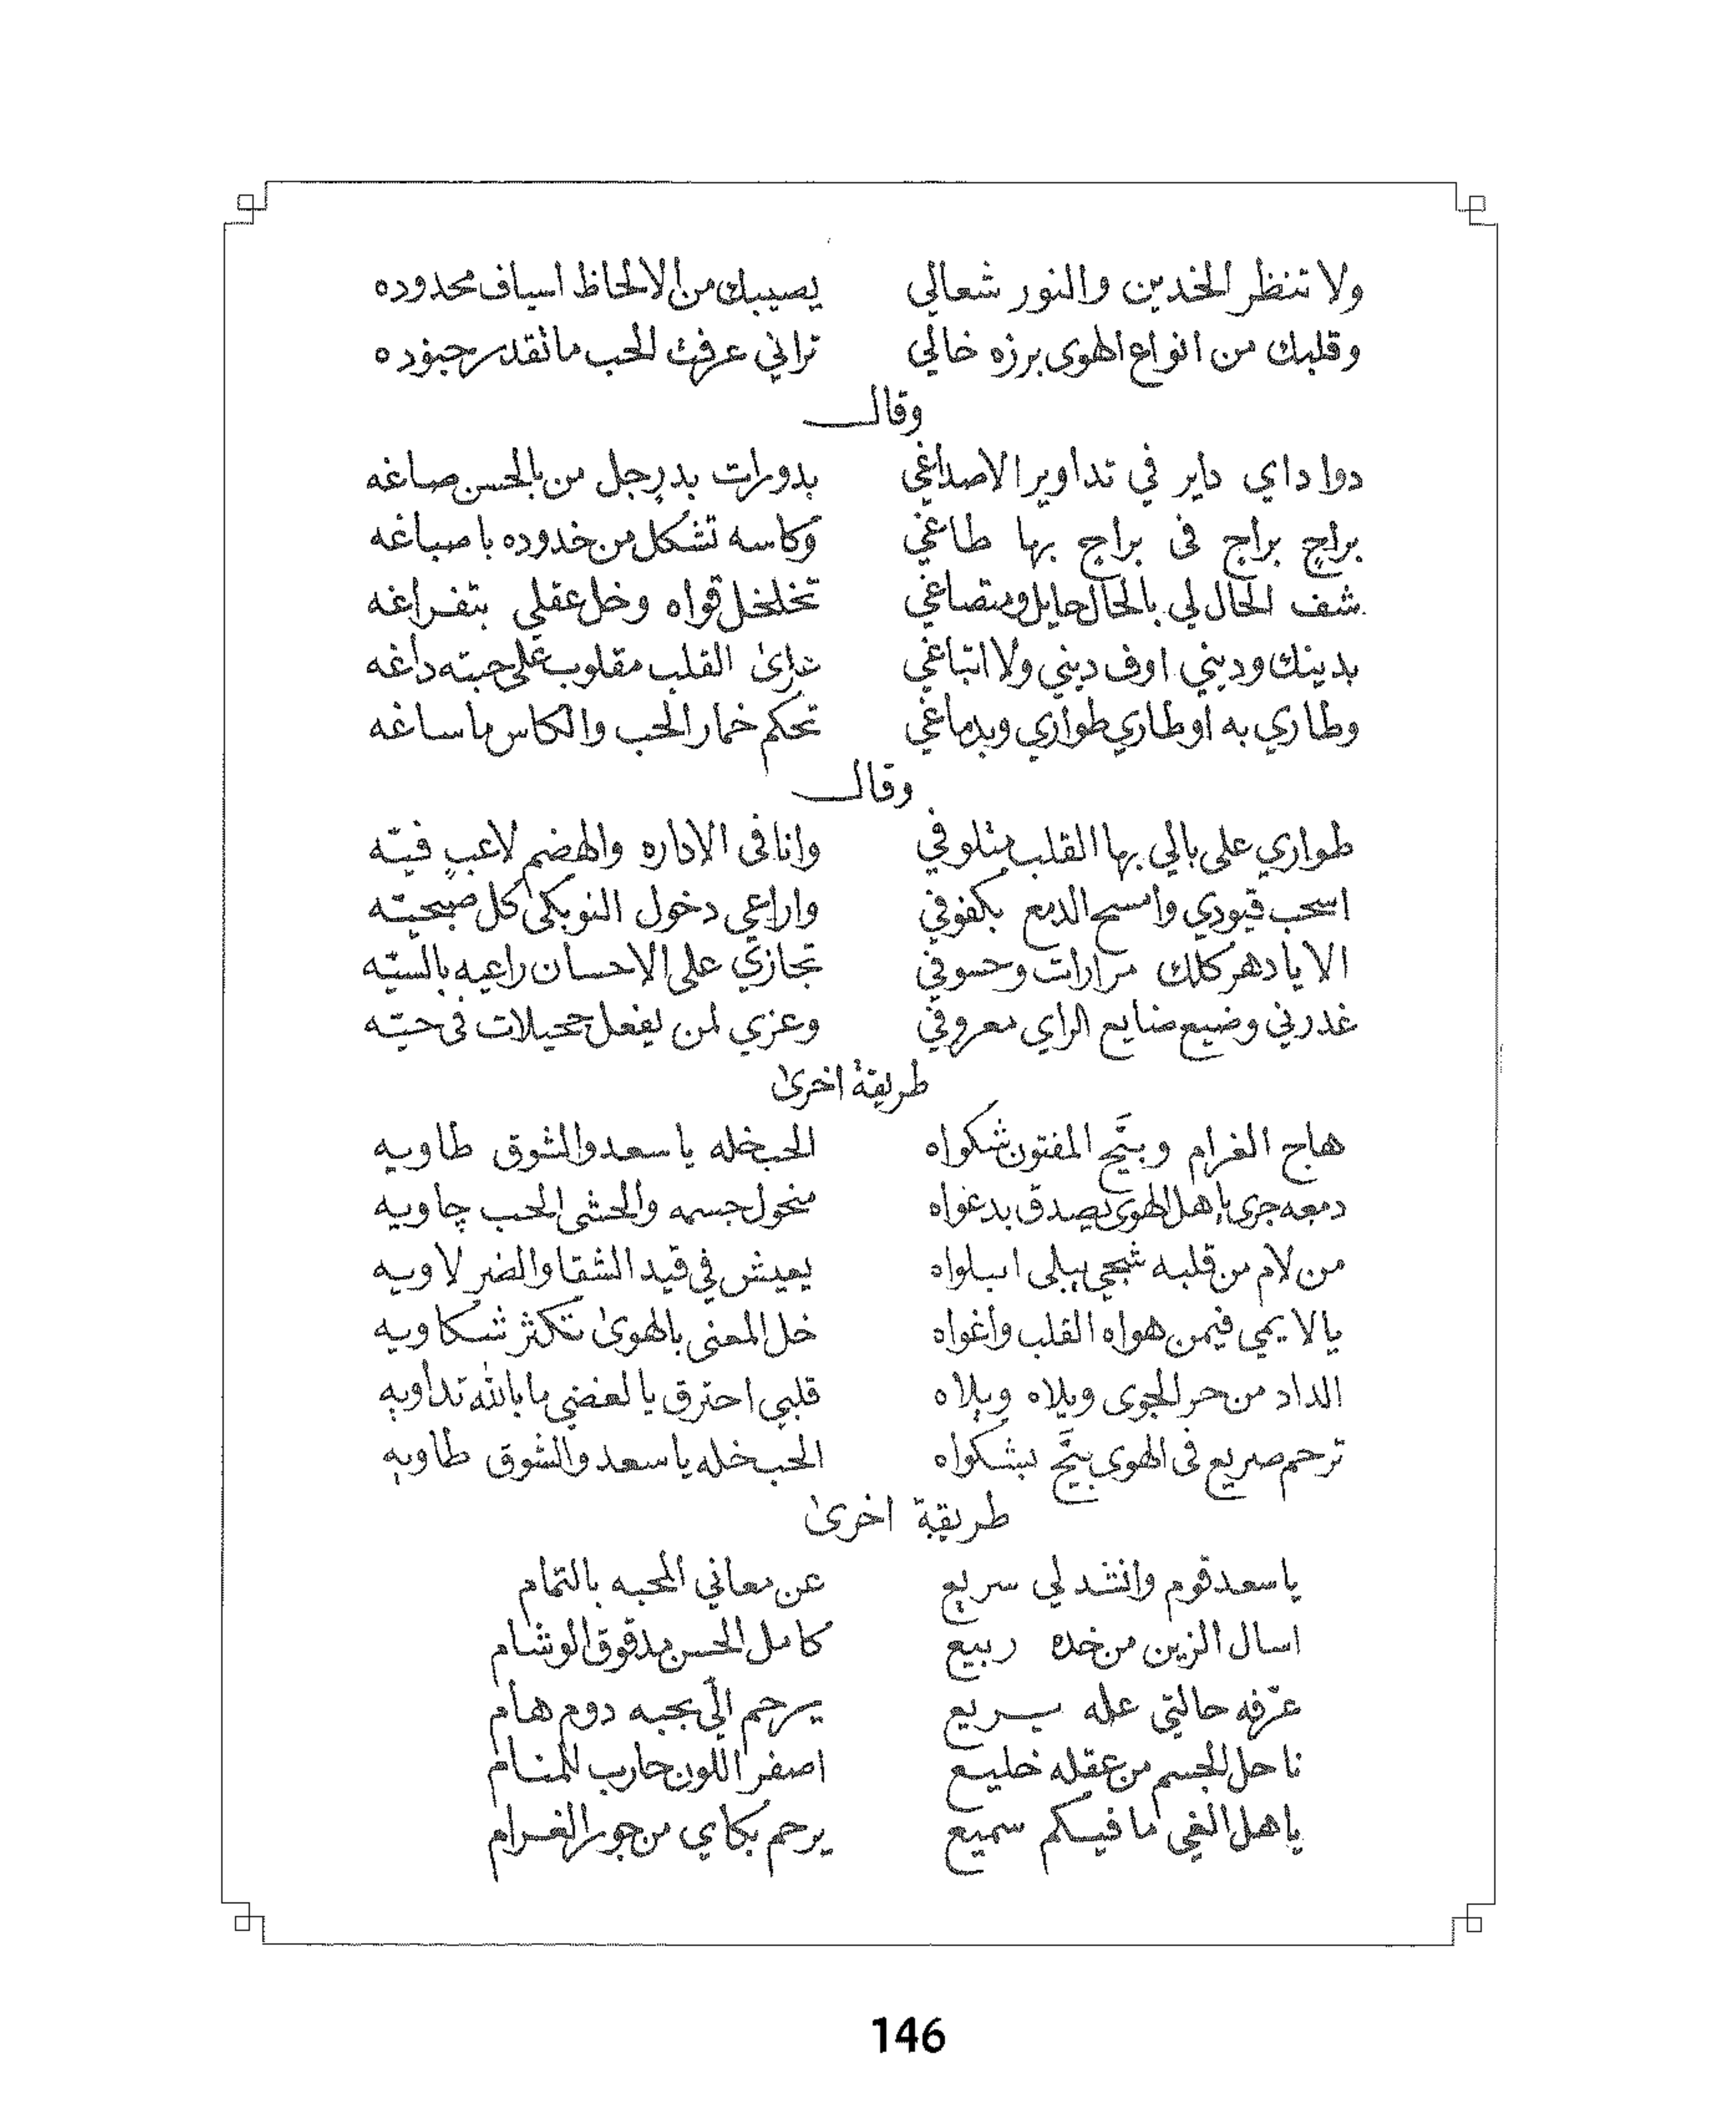 ولا تنظر الخدين والنور شعالي يصيبك من الالحاظ اسياف محدوده
وقلبك من انواع الهوى برزه خالي تراني عرفت الحب ما نقدر جنوده
وقال
دوا داي داير في تداوير الاصداغي بدورات بدر جل من بالحسن صاغه
براج براج في براج بها طاغي وكاسه تشكل من خدوده باصباغه
شف الحال لي بالحال حايل ومتصاغي تخلخل قواه وخل عقلي بتفراغه
بدينك وديني اوف ديني ولا اتباغي ترىٰ القلب مقلوب على حبته داغه
وطاري به اوطاري طواري وبدماغي تحكم خمار الحب والكاس ما ساغه
وقال
طواري على بالي بها القلب متلوفي وانا في الاداره والهضم لاعب فيّه
اسحب قيودي وامسح الدمع بكفوفي واراعي دخول النوبكىٰ كل صبحيّه
الا يا دهر كلك مرارات وحسوفي تجازي على الاحسان راعيه بالسيّه
غدرني وضيع ضنايع الراي معروفي وعزي لمن يفعل جميلات في حيّه
طريقة اخرىٰ
هاج الغرام وبيّح المفتون شكواه الحب خله يا سعد والشوق طاويه
دمعه جرى يا هل الهوى يصدق بدعواه منحول جسمه والحشى الحب چاويه
من لام من قلبه شجي يبلى ابلواه يعيش في قيد الشقا والضر لاويه
يا لايمي فيمن هواه القلب واغواه خل المعنى بالهوىٰ تكثر شكاويه
الداد من حر الجوى ويلاه ويلاه قلبي احترق يا لغضي ما بالله تداويه
ترحم صريع في الهوى بيّح بشكواه الحب خله يا سعد والشوق طاويه
طريقة اخرىٰ
يا سعد قوم وانشد لي سريع عن معاني المحبه بالتمام
اسال الزين من خده ربيع كامل الحسن مدقوق الوشام
عرّفه حالتي عله يريع يرحم الّي بحبه دوم هام
ناحل الجسم من عقله خليع اصفر اللون حارب للمنام
يا هل الغي ما فيكم سميع يرحم بكاي من جور الغرام
146